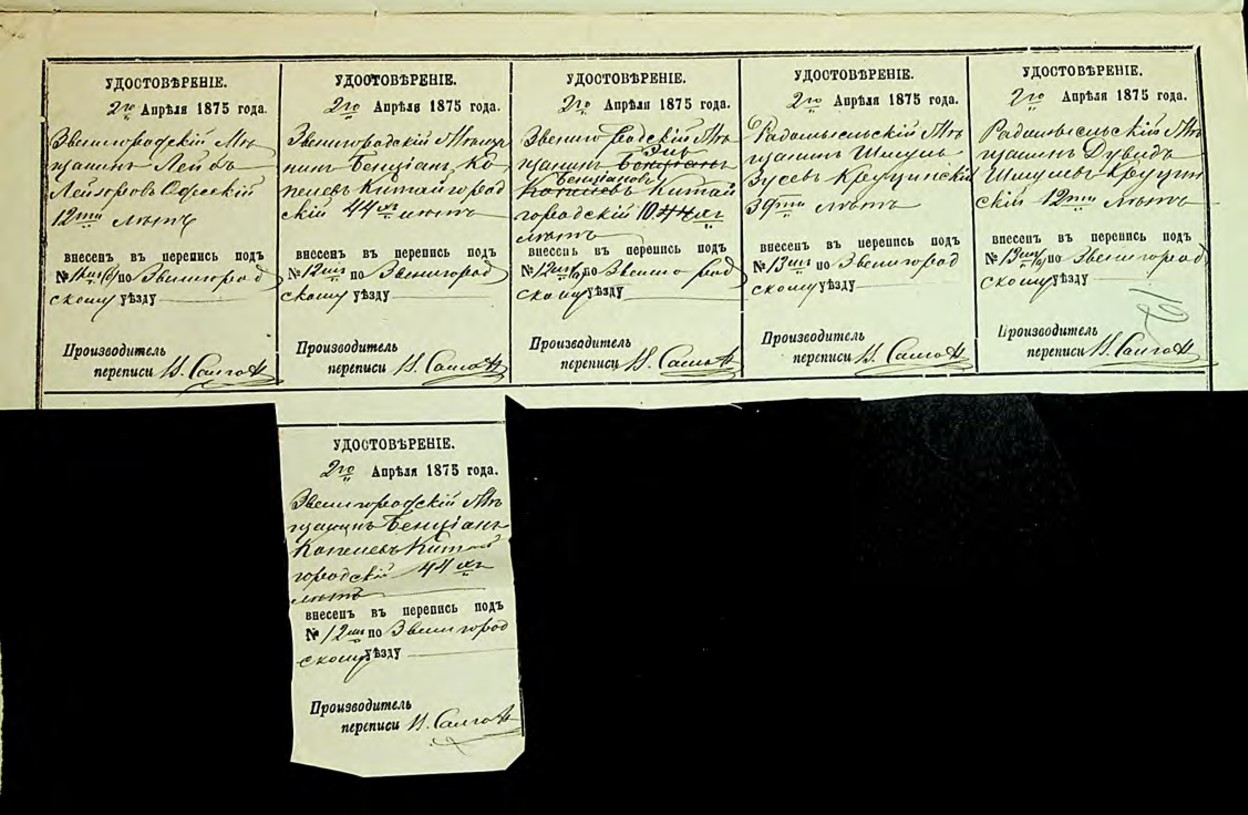 УДОСТОВѢРЕНІЕ.
2го Апрѣля 1875 года.
Звенигородскій Мѣ
щанинъ Лейбъ
Лейзоровъ Одесскій
12ти лѣтъ
внесенъ въ перепись подъ
№ по Звенигород
скому уѣзду
Производитель
переписи
УДОСТОВѢРЕНІЕ.
2го Апрѣля 1875 года.
Звенигородскій Мѣща
нинъ Бенціанъ Ко
пелевъ Китайгород
скій 44хъ лѣтъ
внесенъ въ перепись подъ
№ 12мъ по Звенигород
скому уѣзду
Производитель
переписи
УДОСТОВѢРЕНІЕ.
2го Апрѣля 1875 года.
Звенигородскій Мѣ
щанинъ Бенціанъ
Бенціановъ
Копелевъ Китай
городскій 10 44хъ
лѣтъ
внесенъ въ перепись подъ
№ по Звенигород
скому уѣзду
Производитель
переписи
УДОСТОВѢРЕНІЕ.
2го Апрѣля 1875 года.
Радомысльскій Мѣ
щанинъ Шмуль
Зусевъ Круцинскій
39ти лѣтъ
внесенъ въ перепись подъ
№ 13мъ по Звенигород
скому уѣзду
Производитель
переписи
УДОСТОВѢРЕНІЕ.
2го Апрѣля 1875 года.
Радомысльскій Мѣ
щанинъ Дувидъ
Шмулевъ Круцин
скій 12ти лѣтъ
внесенъ въ перепись подъ
№ по Звенигород
скому уѣзду
Производитель
переписи
УДОСТОВѢРЕНІЕ.
2го Апрѣля 1875 года.
Звенигородскій Мѣ
щанинъ Бенціанъ
Копелевъ Китай
городскій 44хъ
лѣтъ
внесенъ въ перепись подъ
№ 12мъ по Звенигород
скому уѣзду
Производитель
переписи